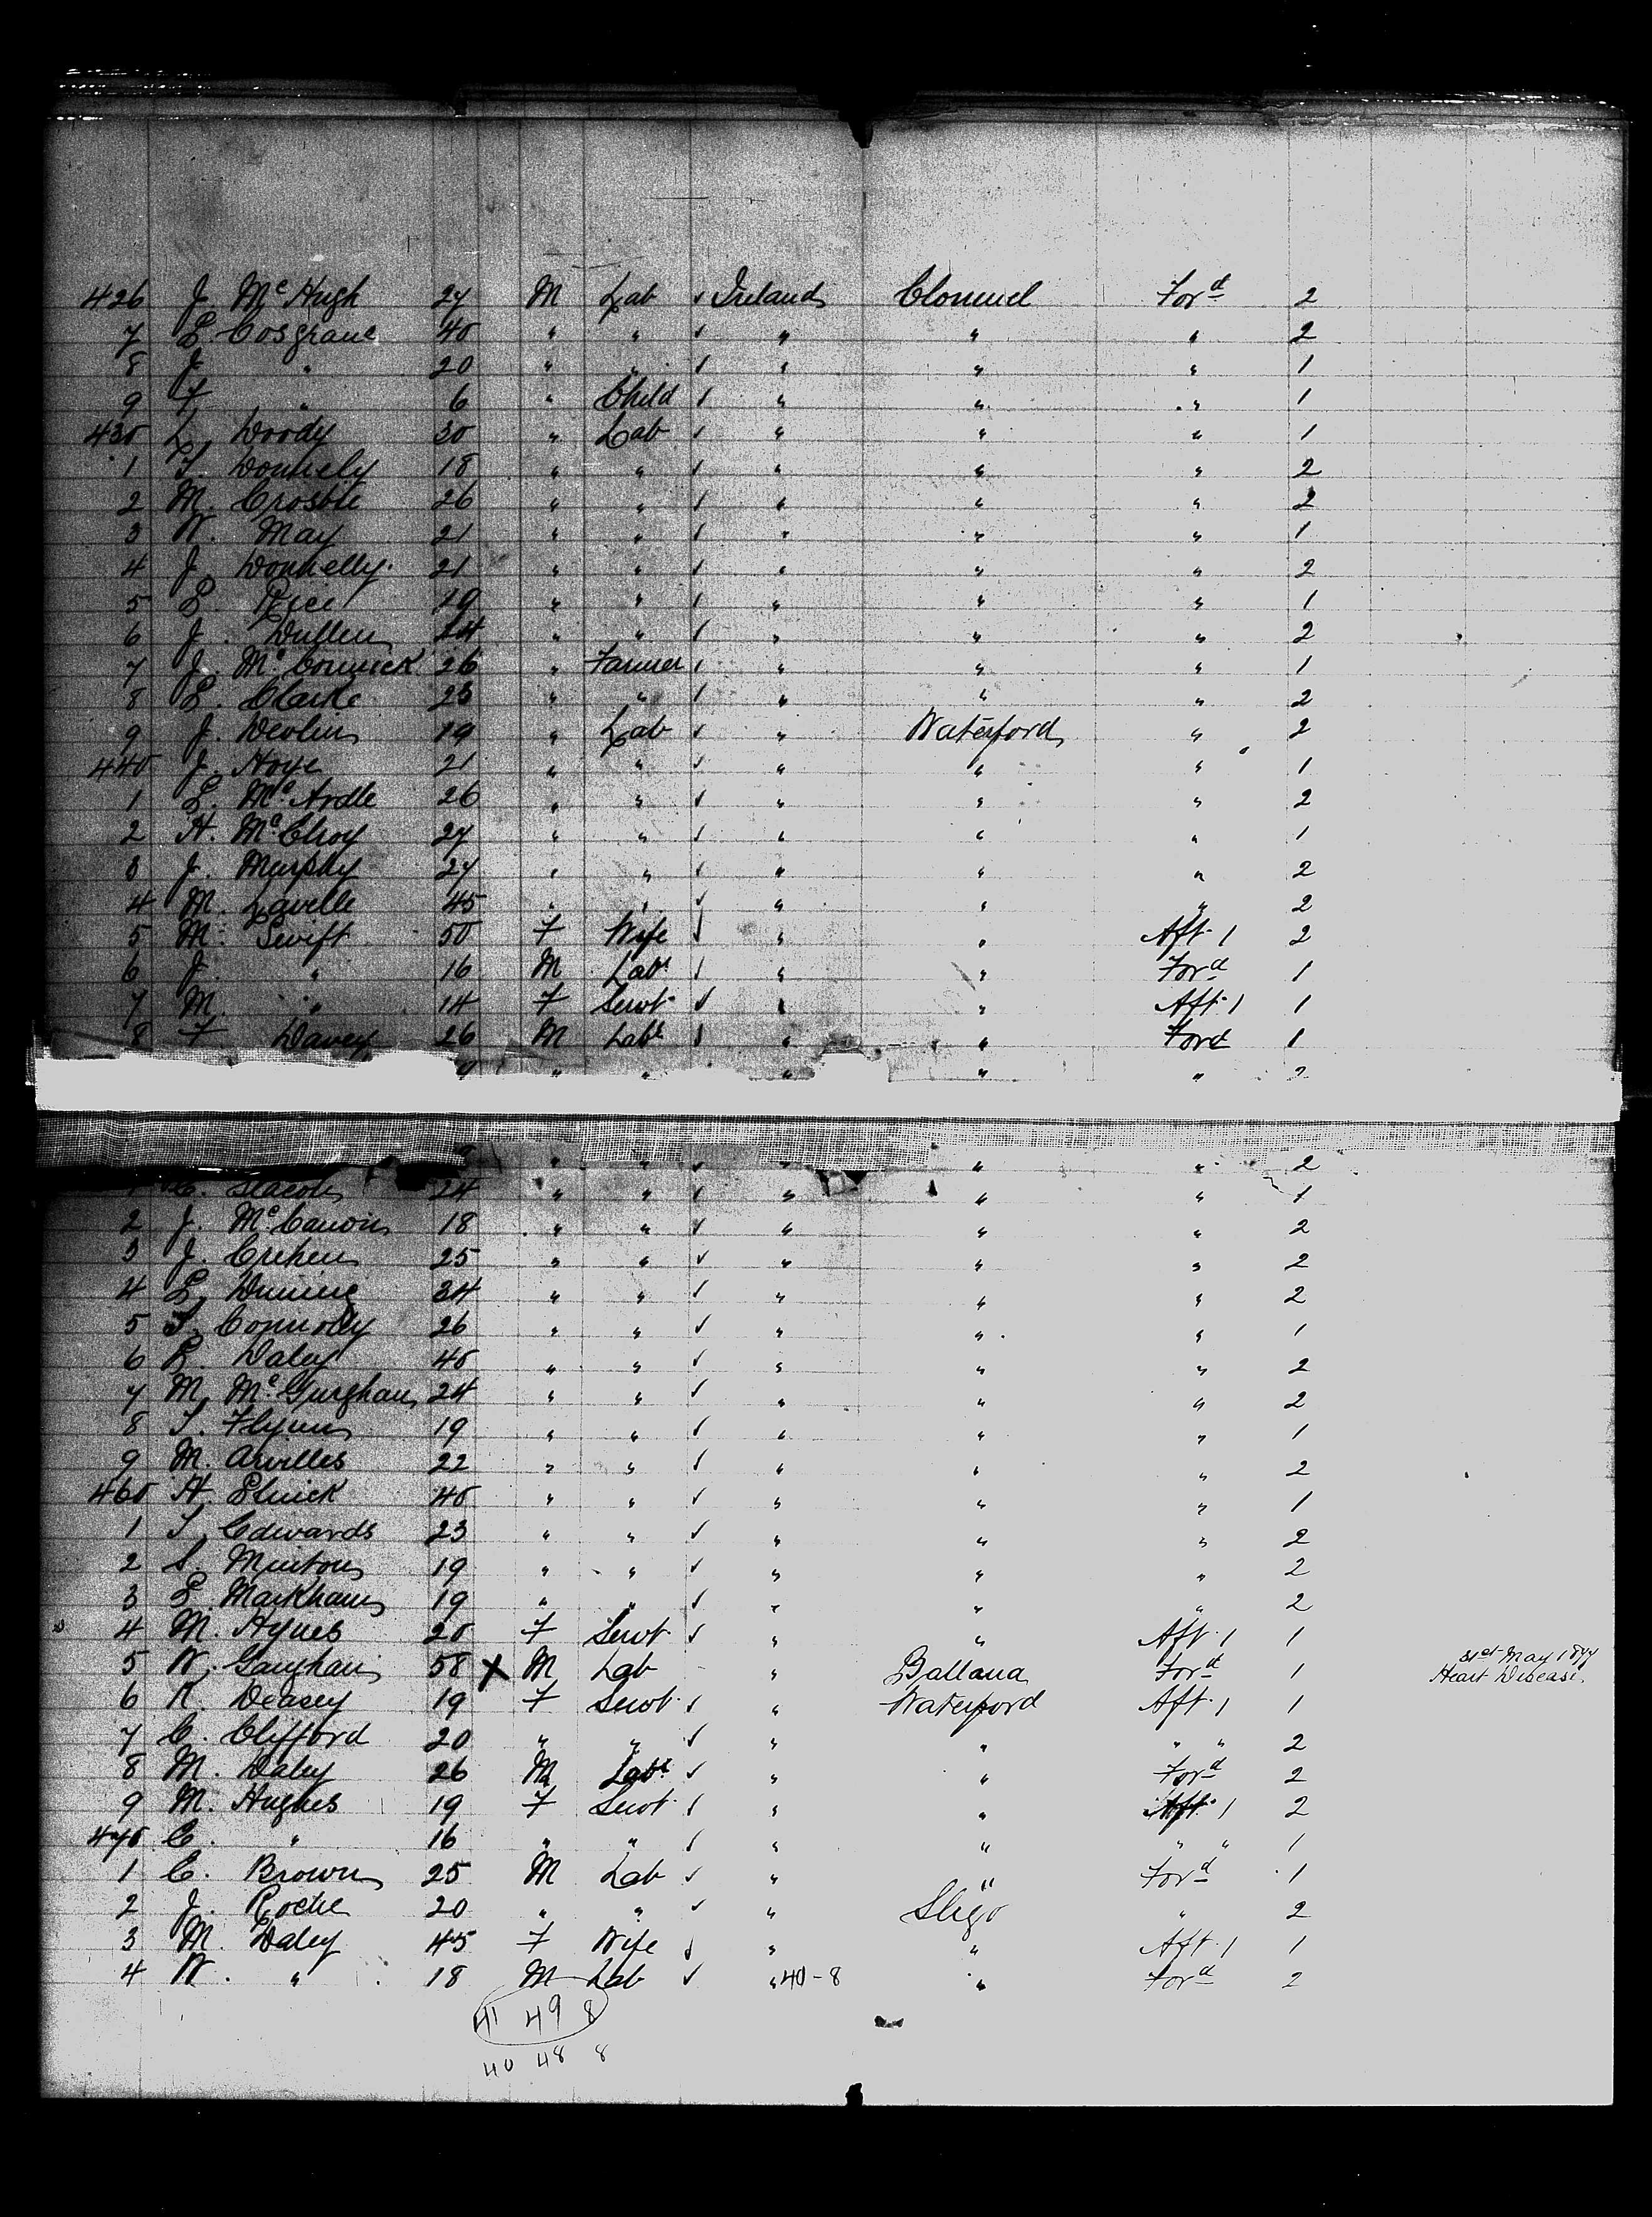 426 J. McHugh 27 M Lab ✓ Ireland Clonmel Ford 2
7 P. Cosgrave 40 " " ✓ " " " 2
8 J. " 20 " " ✓ " " " 1
9 F. " 6 " Child ✓ " " " 1
430 L. Doody 30 " Lab ✓ " " " 1
1 T. Donnely 18 " " ✓ " " " 2
2 M. Crosbie 26 " " ✓ " " " 2
3 W. May 21 " " ✓ " " " 1
4 J. Donnelly 21 " " ✓ " " " 2
5 P. Rice 19 " " ✓ " " " 1
6 J. Dullen 24 " " ✓ " " " 2
7 J. McCormick 26 " Farmer ✓ " " " 1
8 P. Clarke 23 " " ✓ " " " 2
9 J. Devlin 19 " Lab ✓ " Waterford " 2
440 J. Hoye 21 " " ✓ " " " 1
1 P. McArdle 26 " " ✓ " " " 2
2 H. McElroy 27 " " ✓ " " " 1
3 J. Murphy 27 " " ✓ " " " 2
4 M. Lavelle 45 " " ✓ " " " 2
5 M. Swift 50 F Wife ✓ " " Aft. 1 2
6 J. " 16 M Labr ✓ " " Ford 1
7 M. " 14 F Servt ✓ " " Aft. 1 1
8 F. Davey 26 M Labr ✓ " " Ford 1
" " " " " 2
" " ✓ " " " 2
24 " " ✓ " " " 1
2 J. McCanon 18 " " ✓ " " " 2
3 J. Crehen 25 " " ✓ " " " 2
4 P. 34 " " ✓ " " " 2
5 T. Connolly 26 " " ✓ " " " 1
6 P. Daley 40 " " ✓ " " " 2
7 M. McGurghan 24 " " ✓ " " " 2
8 T. Flynn 19 " " ✓ " " " 1
9 M. 22 " " ✓ " " " 2
460 H. 40 " " ✓ " " " 1
1 T. Edwards 23 " " ✓ " " " 2
2 S. Minton 19 " " ✓ " " " 2
3 P. Markham 19 " " ✓ " " " 2
4 M. Hynes 20 F Servt ✓ " " Aft. 1 1
5 W. Gaughan 58 X M Lab " Ballana Ford 1 31st May 1877
Heart Disease
6 K. Deasey 19 F Servt ✓ " Waterford Aft. 1 1
7 C. Clifford 20 " " ✓ " " " " 2
8 M. Daley 26 M Labr ✓ " " Ford 2
9 M. Hughes 19 F Servt ✓ " " Aft. 1 2
470 C. " 16 " " ✓ " " " " 1
1 C. Brown 25 M Lab ✓ " " Ford 1
2 J. Roche 20 " " ✓ " Sligo " 2
3 M. Daley 45 F Wife ✓ " " Aft. 1 1
4 W. " 18 M Lab ✓ " 40-8 " Ford 2
41 49 8
40 48 8